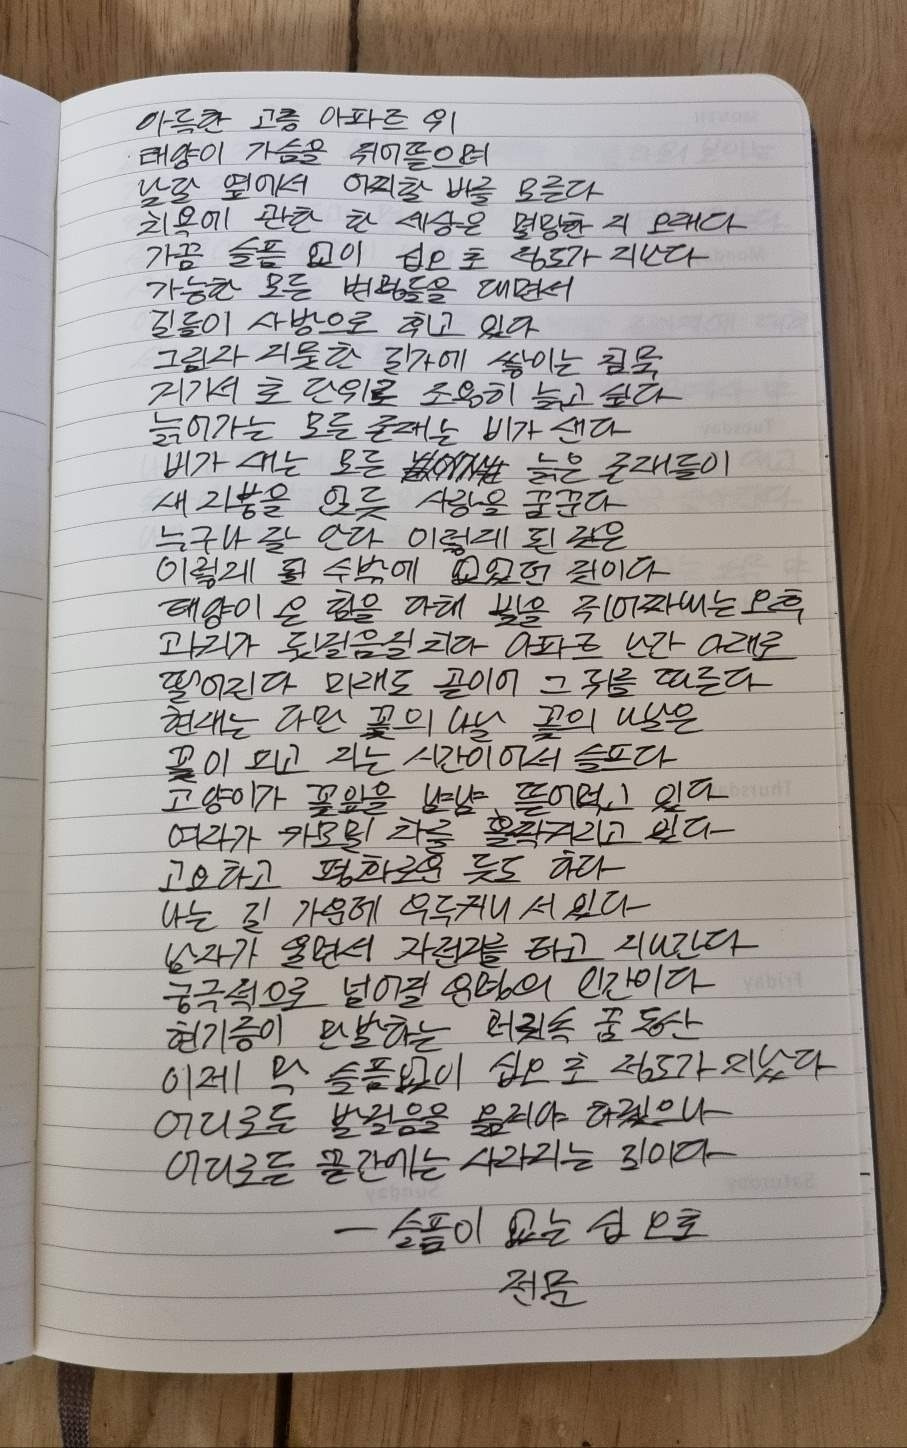 아득한 고층 아파트 위
태양이 가슴을 쥐어뜯으며
낮달 옆에서 어찌할 바를 모른다
치욕에 관한 한 세상은 멸망한 지 오래다
가끔 슬픔 없이 십오 초 정도가 지난다
가능한 모든 변명들을 대면서
길들이 사방으로 휘고 있다
그림자 거뭇한 길가에 쌓이는 침묵
거기서 초 단위로 조용히 늙고 싶다
늙어가는 모든 존재는 비가 샌다
비가 새는 모든 늙은 존재들이
새 지붕을 얹듯 사랑을 꿈꾼다
누구나 잘 안다 이렇게 된 것은
이렇게 될 수밖에 없었던 것이다
태양이 온 힘을 다해 빛을 쥐어짜내는 오후
과거가 뒷걸음질 치다 아파트 난간 아래로
떨어진다 미래도 곧이어 그 뒤를 따른다
현재는 다만 꽃의 나날 꽃의 나날은
꽃이 피고 지는 시간이어서 슬프다
고양이가 꽃잎을 냠냠 뜯어먹고 있다
여자가 카모밀 차를 홀짝거리고 있다
고요하고 평화로운 듯도 하다
나는 길 가운데 우두커니 서 있다
남자가 울면서 자전거를 타고 지나간다
궁극적으로 넘어질 운명의 인간이다
현기증이 만발하는 머릿속 꿈 동산
이제 막 슬픔없이 십오 초 정도가 지났다
어디로든 발걸음을 옮겨야 하겠으나
어디로든 끝간에는 사라지는 길이다
— 슬픔이 없는 십 오초
전문